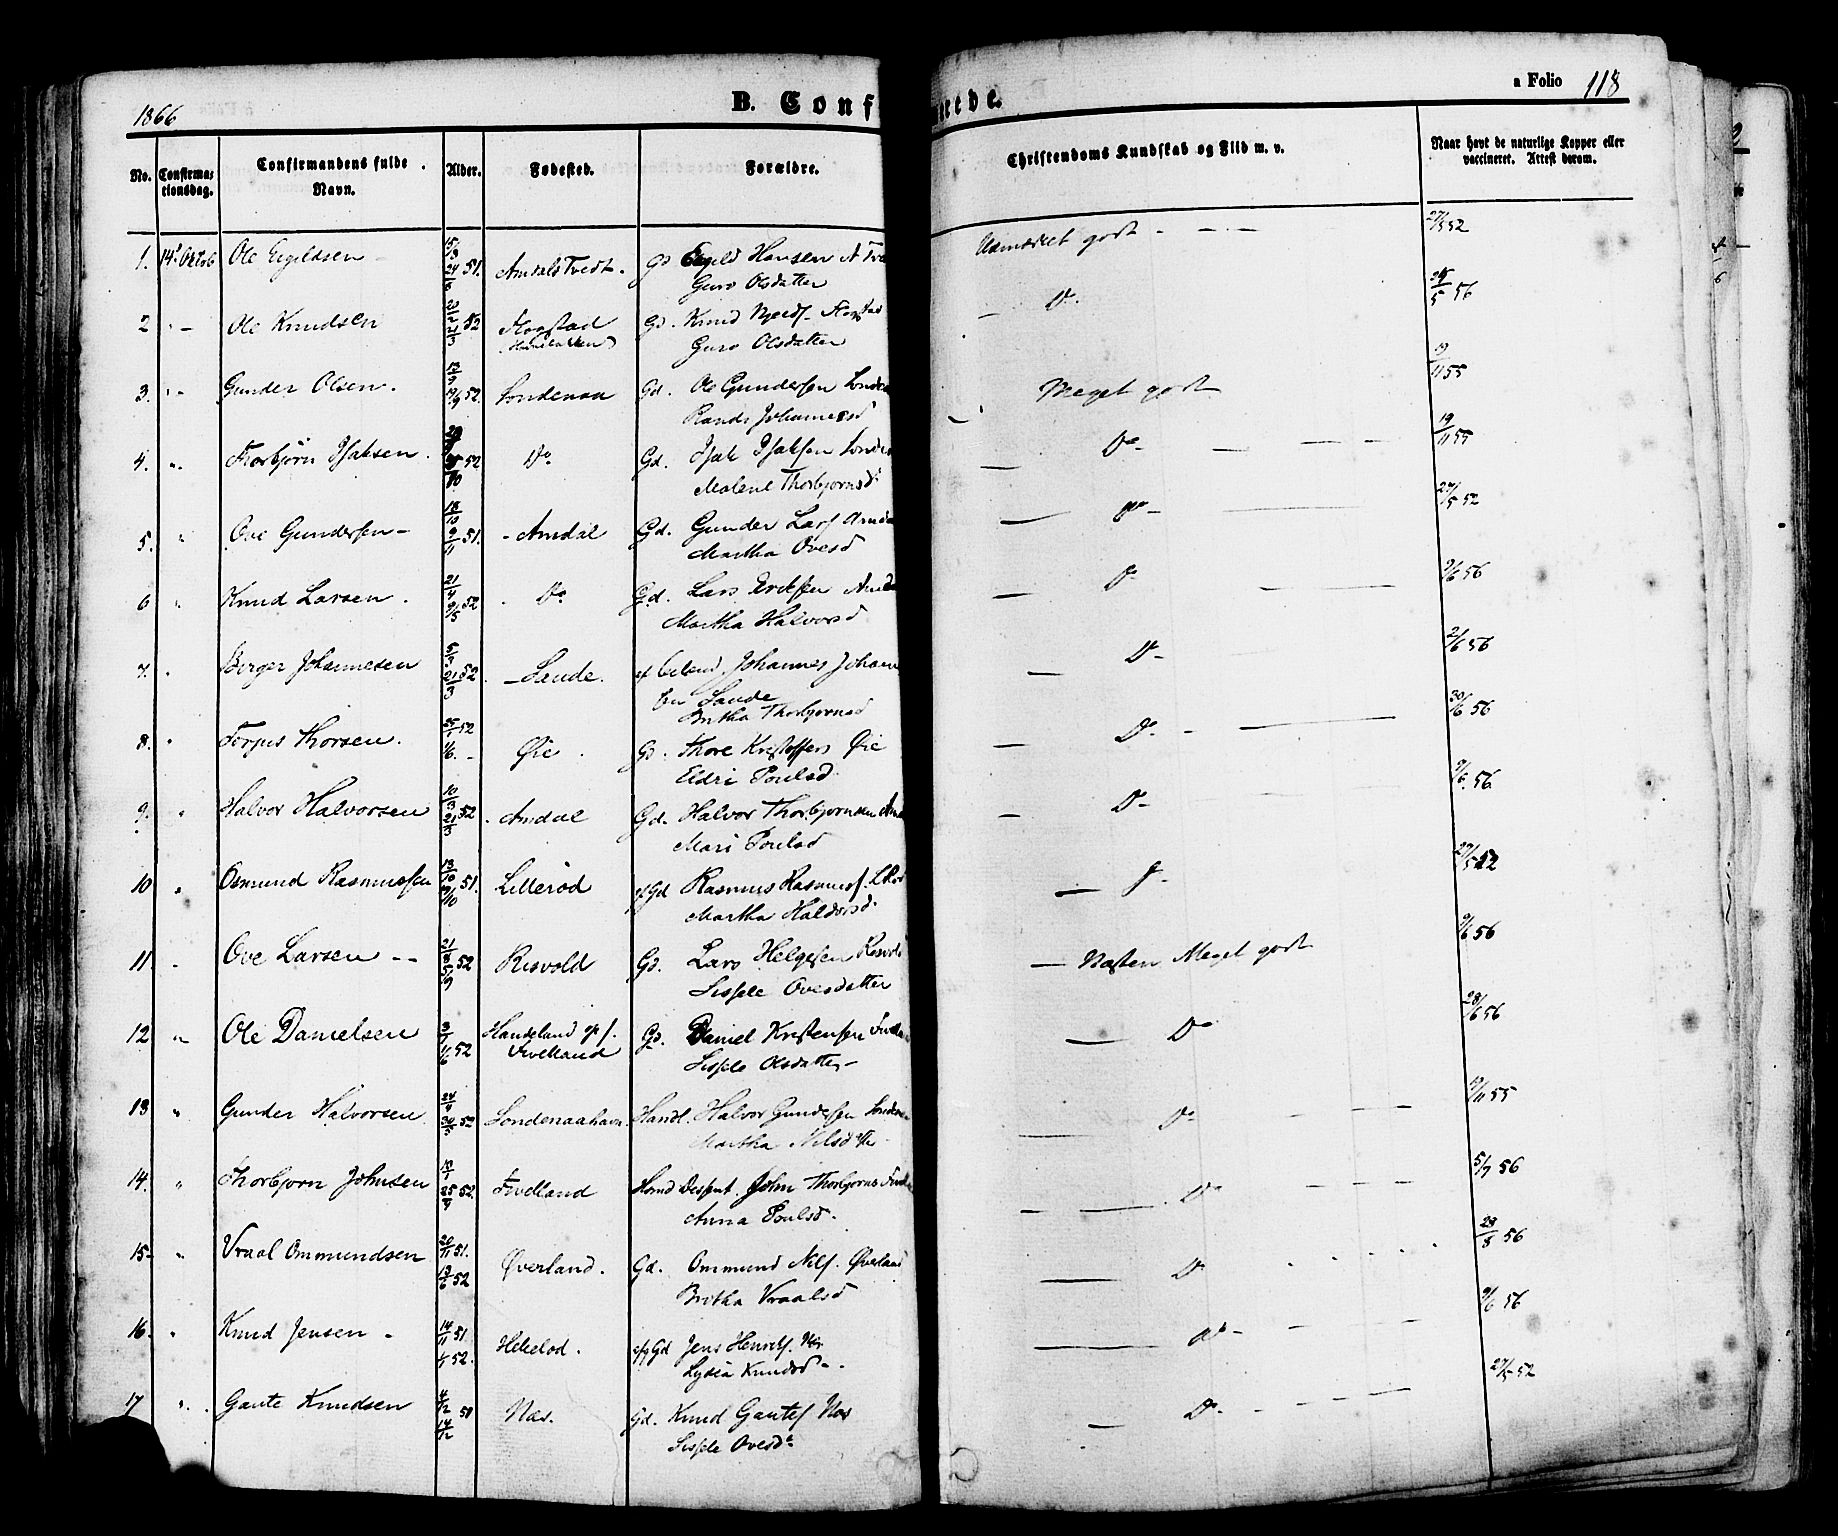 1866
B. Conf
rede.
a Folio 118
No.
Confirma=
tionsdag.
Confirmandens fulde
Navn.
Alder.
Fødested.
Forældre.
Christendoms Kundskab og Flid m. v.
Naar havt de naturlige Kopper eller
vaccineret. Attest derom.
1. 14d Oktob Ole Eigeldsen 15/3 24/8 51. Amdals Tvedt. Gd Eigeld Hansen A Tve
Guro Olsdatter
Udmærket godt 27/5 52
2 " Ole Knudsen 20/2 21/3 52 Flogstad Gd. Knud
Guro Olsdatter
Do. 25/5 56
3. " Gunder Olsen. 52. Londenaa Gd. Ole Gundersen Londen
Randi Johannesd
Meget godt 19/11 55
4. " Thorbjørn Isaksen. 52 Do Gd. Isak Isaksen Londe
Malene Thorbjornsd
Do 19/11 55
5. " Ove Gundersen 18/10 9/11 51. Amdal Gd. Gunder Lars Amda
Martha Ovesd
Do 27/5 52
6 " Knud Larsen. 21/4 9/5 52 Do Gd. Lars Eriksen Amda
Martha Halvorsd
Do 9/6 56
7. " Berger Johannesen 5/3 21/3 52. Sande. Johannes Johann
sen Sande
Britha Thorbjornsd
Do 2/6 56
8. " Terjus Thorsen. 52 1/6. Øie. Gd. Thore Kristoffers Øie
Eldri Poulsd.
Do 30/6 56
9. " Halvor Halvorsen 10/3 21/3 52. Amdal Gd. Halvor Thorbjornsen Am
Mari Poulsd
Do 9/6 56
10 " Osmund Rasmussen 13/10 19/10 51. Lillerød Gd Rasmus Rasmus. L Rød
Martha Haldorsd.
Do 27/5 52
11. " Ove Larsen 21/8 5/9 52 Risvold Gd. Lars Helgesen Risvold
Sissele Ovesdatter
Næsten Meget godt 9/6 56
12 " Ole Danielsen 1/6 52 Haudeland opf.
Tvelland Gd. Daniel Kristensen
Sissele Olsdatter
Do 28/6 56
13 " Gunder Halvorsen 24/4 30/5 52 Londenaahavn. Handl. Halvor Gundersen Londen
Martha Nilsdtte
Do 19/11 55
14. " Thorbjorn Johnsen 52. Tvelland John Thorbjorns
Anna Poulsd.
Do 5/7 56
15 " Vraal Ommundsen 20/11 51. 13/6 52 Øverland. Gd. Ommund Nils. Øverland
Britha Vraalsd
Do 29/8 56
16. " Knud Jensen 14/11 51 52. Heielød. Gd Jens Henriks. Næs
Lydia Knudsd
Do 9/6 56
17 " Gaute Knudsen 4/12 14/12 51 Næs. Gd. Knud Gautes Næs
Sissele Ovesd
Do 27/5 52